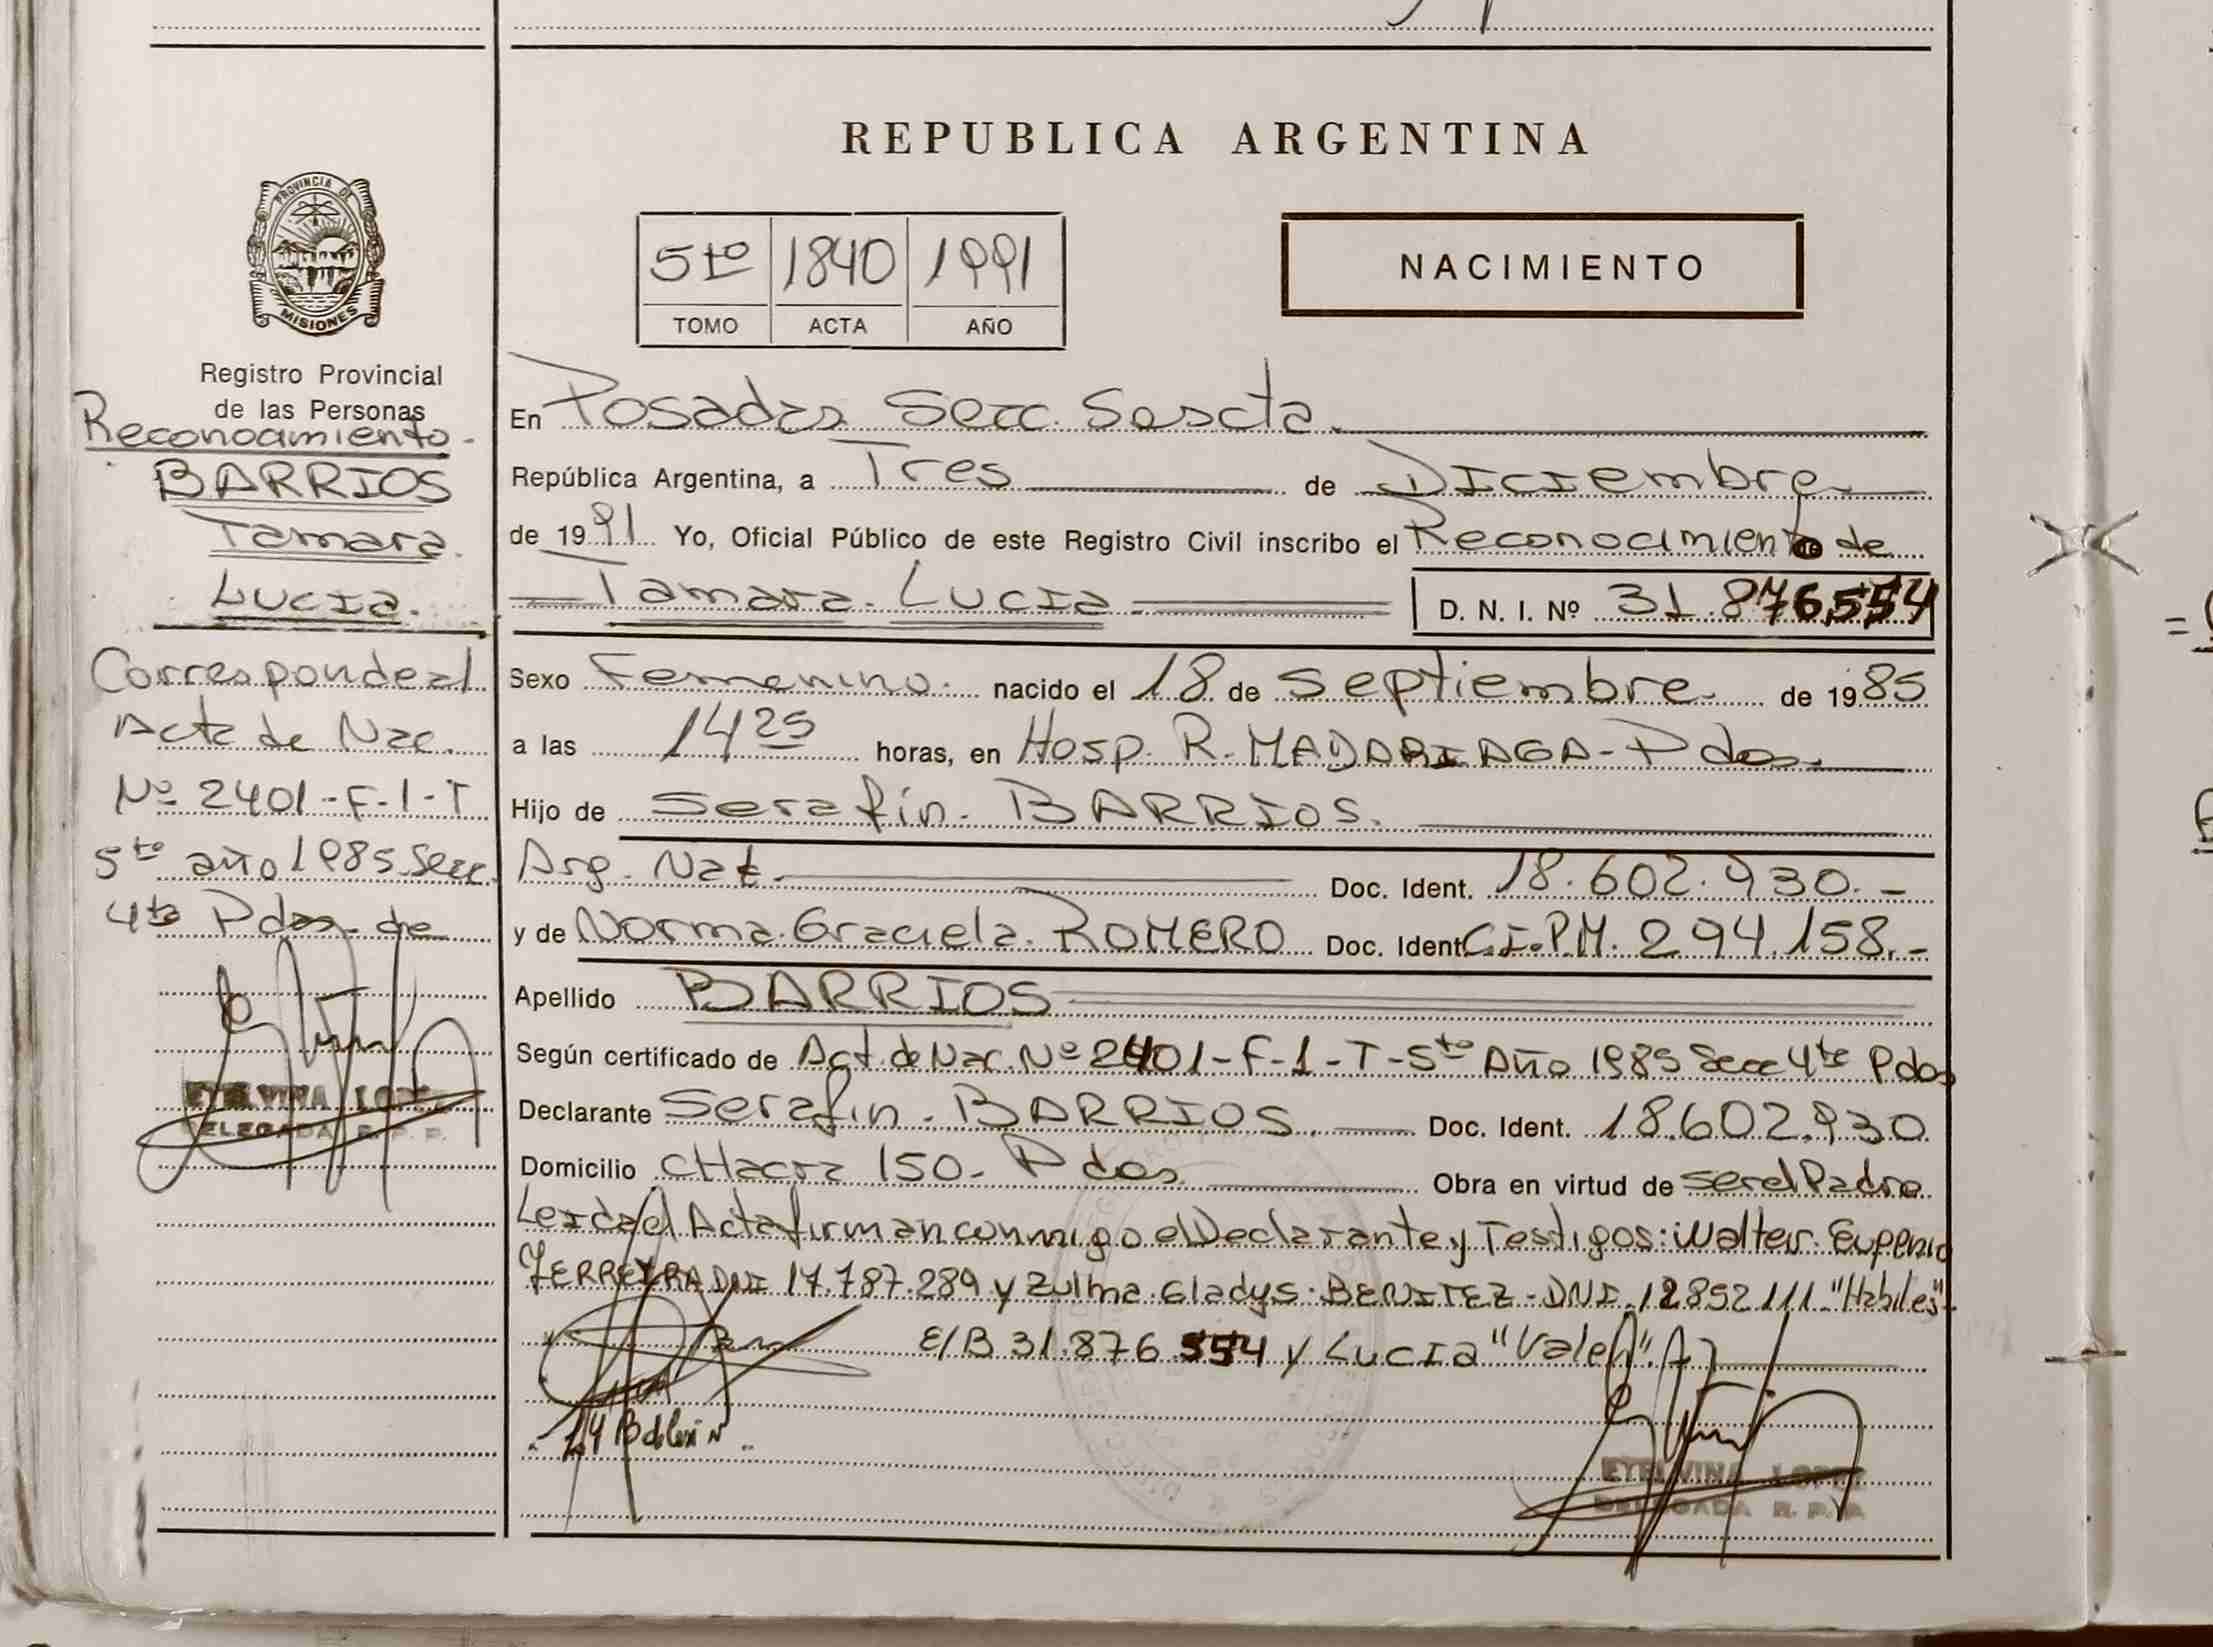 REPUBLICA ARGENTINA
PROVINCIA DE
MISIONES
5to 1840 1991
TOMO ACTA AÑO
NACIMIENTO
Registro Provincial
de las Personas
Reconocimiento-
BARRIOS
Tamara
Lucia.
Corresponde al
Acta de Nac.
Nº 2401-F-1-T
5to año 1985 Secc.
4ta Pdas. de
EYELVINA
DELEGADA R. P. P.
En Posadas Secc. Sescta.
República Argentina, a Tres de Diciembre
de 1991 Yo, Oficial Público de este Registro Civil inscribo el Reconocimiento de
Tamara Lucia D. N. I. Nº 31.876554
Sexo Femenino. nacido el 18 de Septiembre de 1985
a las 14 25 horas, en Hosp. R. MADARIAGA - Pdas.
Hijo de Serafin. BARRIOS.
Arg. Nat. Doc. Ident. 18.602.930.-
y de Norma Graciela ROMERO Doc. Ident. C.I.P.M. 294.158.-
Apellido BARRIOS
Según certificado de Act. de Nac. Nº 2401-F-1-T-5to Año 1985 Secc 4ta Pdas
Declarante Serafin. BARRIOS. Doc. Ident. 18.602.930
Domicilio cHacra 150- Pdas Obra en virtud de ser el Padre
Leida el Acta firman conmigo el Declarante y Testigos: Walter Eugenio
FERREYRA DNI 17.787.289 y Zulma Gladys BENITEZ - DNI 12852111 "Habiles"-
E/B 31.876.554 y Lucia "Valen".
EYELVINA
DELEGADA R. P. P.